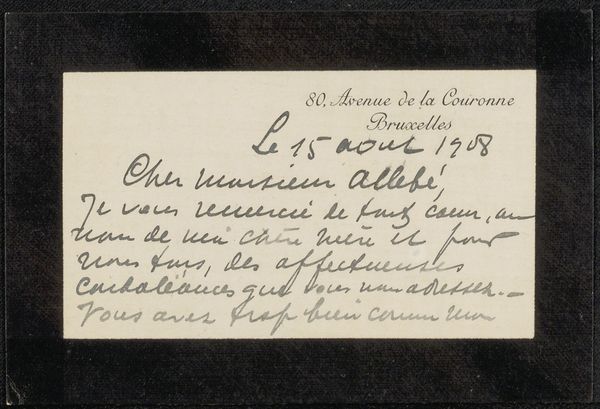 80, Avenue de la Couronne
Bruxelles
Le 15 aout 1908
Cher Monsieur Allebé,
Je vous remercie de tout coeur, au
nom de ma chère mère et pour
nous tous, des affectueuses
condoléances que vous nous adressez. —
Vous avez trop bien connu mon